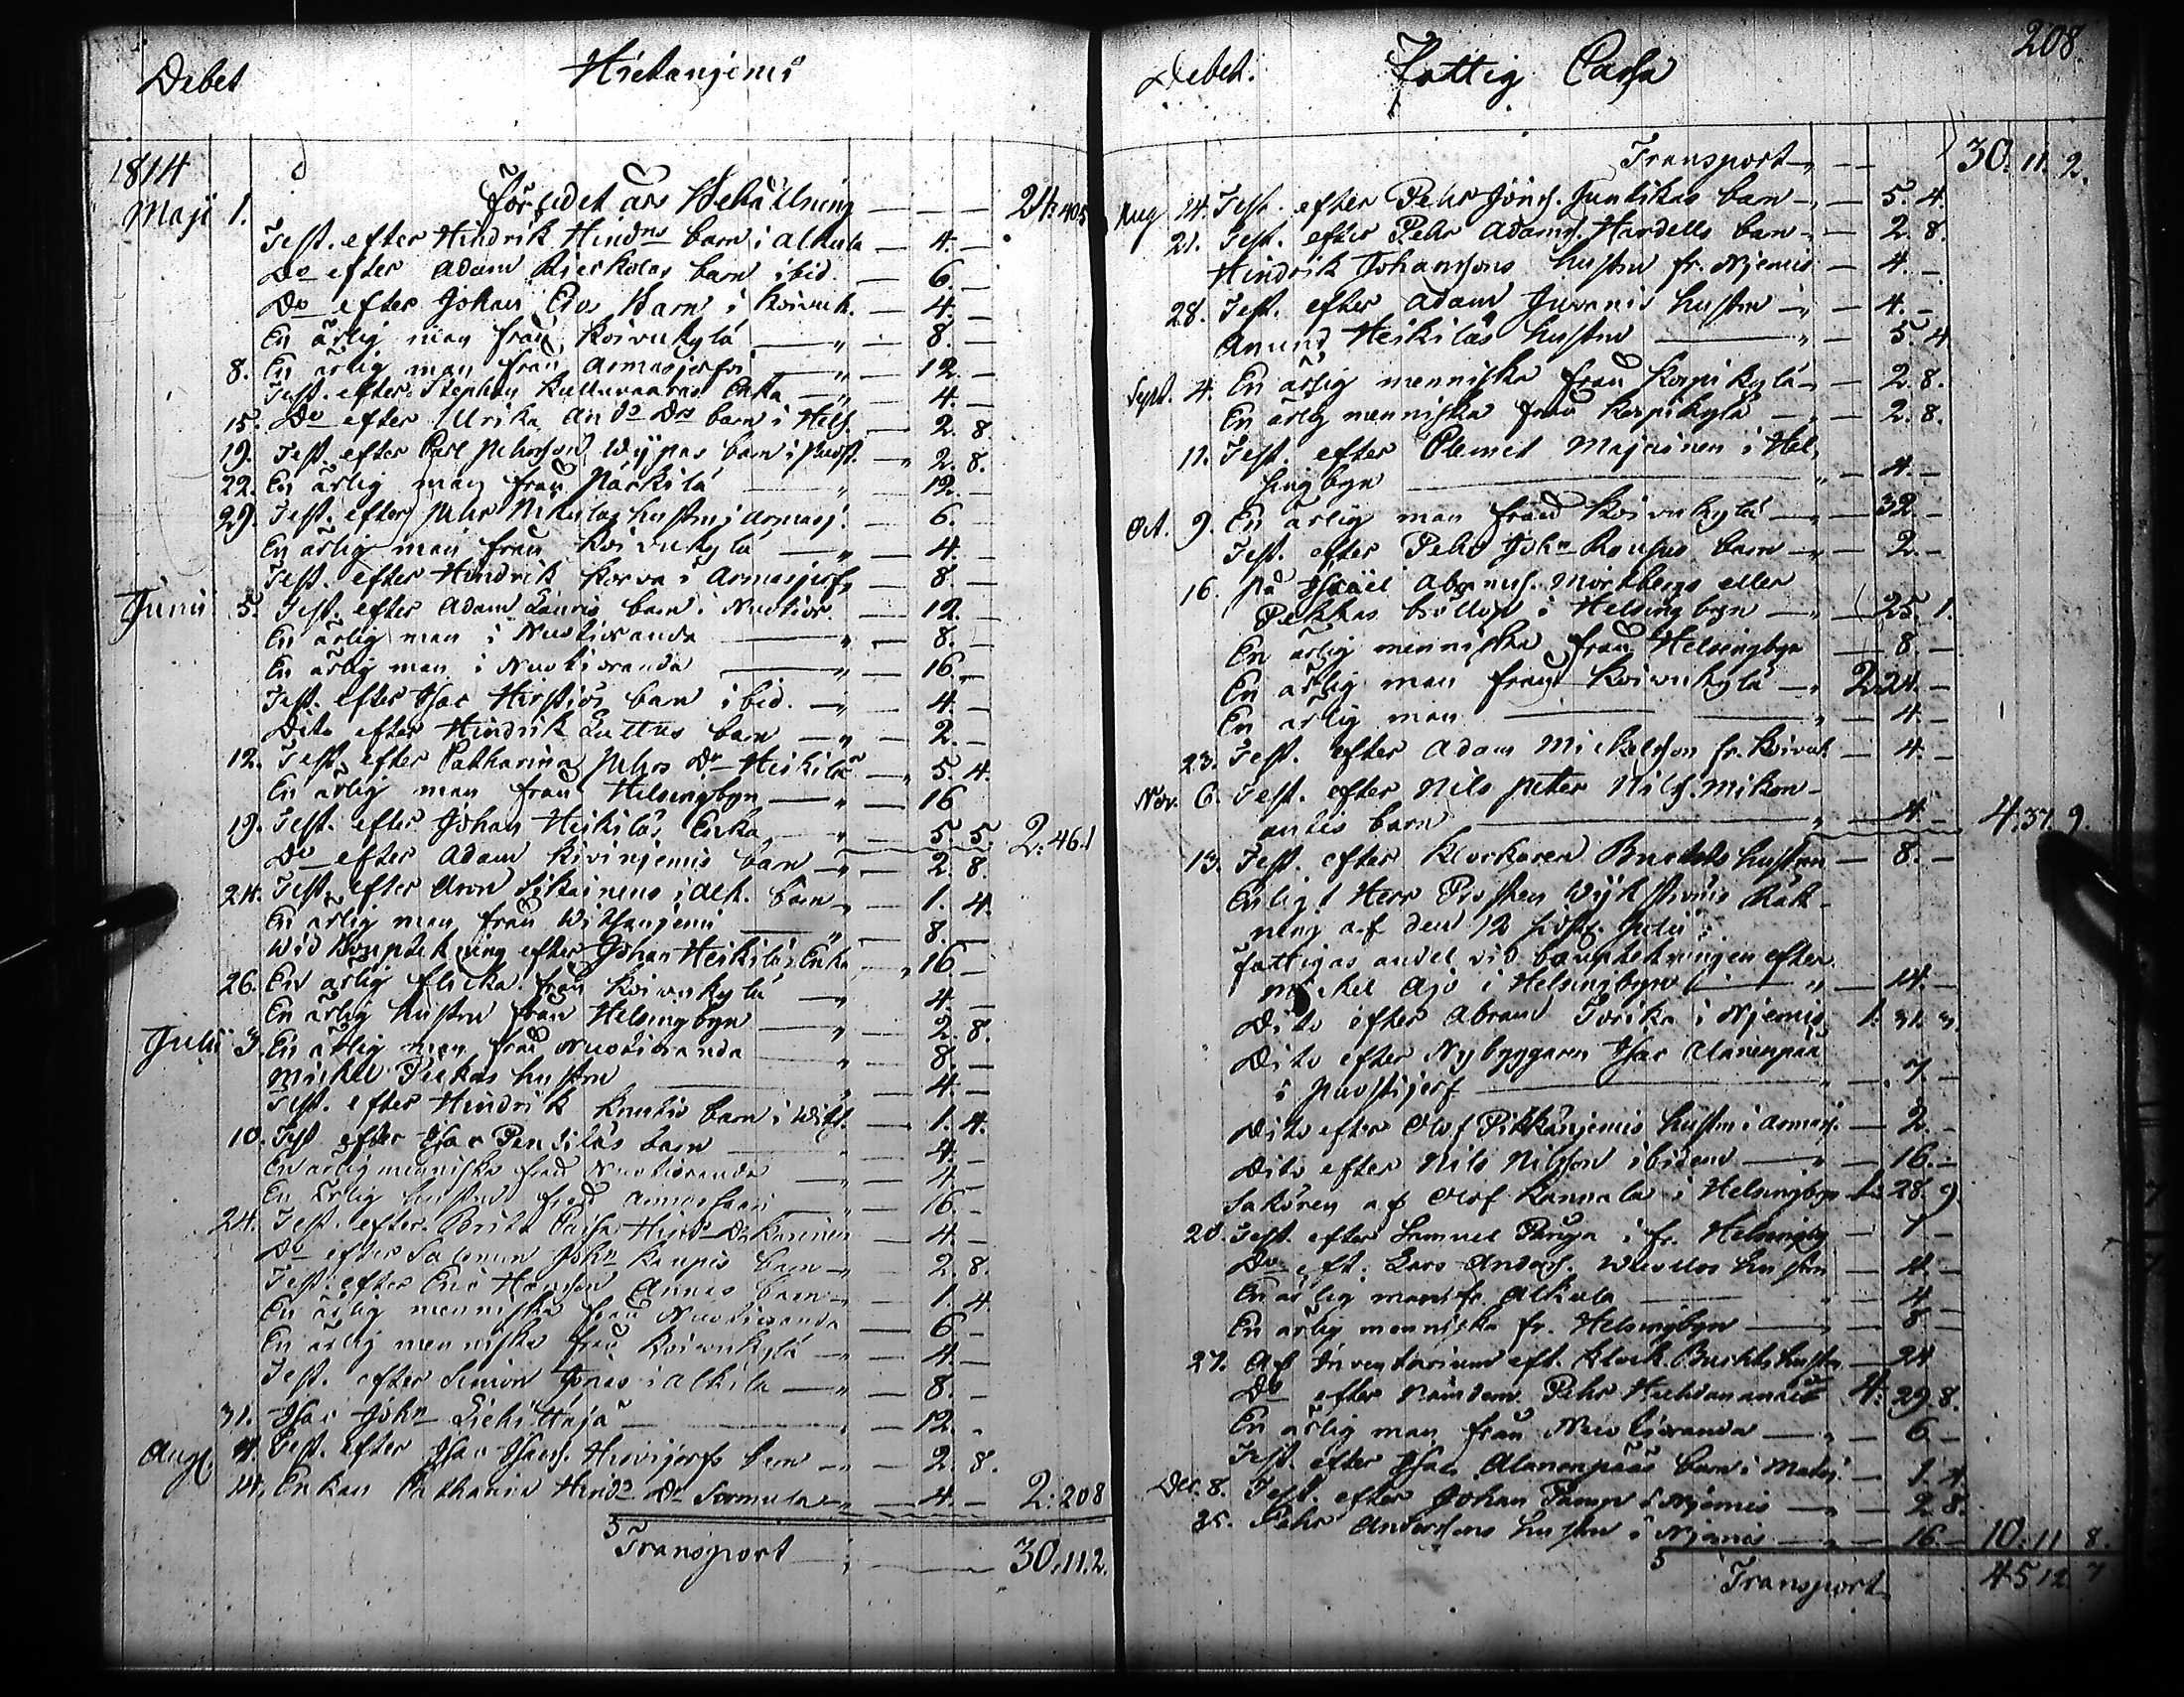 Debet Hietaniemi
1814
Maji 1. Förledet års Behållning — — — 24:40.5
Test. efter Hindrik Hindns barn i Alkula — 4. —
Do efter Adam Kierkolas barn ibid. — 6. —
Do efter Johan Eros Barn i Koivuk. — 4. —
En ärlig man från Koivukylä — " — 8. —
8. En ärlig man från Armasjerfvi — " — 12. —
Test. efter Stephan Kulluvaaras Enka — " — 4. —
15. Do efter Ulrika And. Drs barn i Hels. — 2. 8.
19. Test. efter Carl Pehrsson Wypas barn i — " 2. 8.
22. En ärlig man från Närkilä — " — 12. —
29. Test. efter Pehr Nikulas hustru i Armasj. — 6. —
En ärlig man från Koivukylä — " — 4. —
Test. efter Hindrik Korva i Armasjerf — 8. —
Junii 5. Test. efter Adam Lauris barn i Nuotior. — 12. —
En ärlig man i Nuotioranda — " — 8. —
En ärlig man i Nuotioranda — " — 16. —
Test. efter Isac Hirstiös barn ibid. — " — 4. —
Dito efter Hindrik Luttus barn — " — 2. —
12. Test. efter Catharina Pehrs Dr Heikilä — " 5. 4.
En ärlig man från Helsingbyn — " — 16
19. Test. efter Johan Heikiläs Enka — " — 5. 5 2:46.1
Do efter Adam Kivinjemis barn — " — 2. 8.
24. Test. efter Aron Sikainens i Alk. barn — " — 1. 4.
En ärlig man från Witsanjemi — " — 8. —
Wid Bouptekning efter Johan Heikiläs Enka — " 16. —
26. En ärlig flicka från Koivukylä — " — 4. —
En ärlig hustru från Helsingbyn — " — 2. 8.
Julii 3. En ärlig man från Nuotioranda — " — 8. —
Michel Pekkas hustru — " — 4. —
Test. efter Hindrik Knutis barn i Wits. — 1. 4.
10. Test efter Isac Pentiläs barn — " — 4. —
En ärlig menniska från Nuotioranda — " — 4. —
En ärlig hustru från — " — 16. —
24. Test. efter Brita Caisa Hinds Dr — 4. —
Do efter Salomon Johns Kaupis barn — " — 2. 8.
Test. efter Eric Hansson Annas barn — " — 1. 4
En ärlig menniska från Nuotioranda — 6 —
En ärlig menniska från Koivukylä — " — 4. —
Test. efter Simon Jönso i Alkula — " — 8. —
31. Isac Johns — " — 12. -
Aug. 4. Test. efter Isac Isacs. Hirvijerfs barn — " — 2. 8.
14. Enkan Catharina Hinds Dr Sormula — " — 4. — 2:208
Transport — 30.11.2.
208.
Debet. Fattig Cassa
Transport — " — — 30. 11. 2.
Aug 14. Test. efter Pehr Jöns. Juntikas barn — " — 5. 4.
21. Test. efter Pehr Adams. Hardells barn — " — 2. 8.
Hindrik Johanssons hustru fr. Njemis — 4. —
28. Test. efter Adam Juvanis hustru — " — 4. —
Amund Heikiläs hustru — " — 5. 4
Sept. 4. En ärlig menniska från Korpikylä — " — 2. 8.
En ärlig menniska från Korpikylä — " — 2. 8.
11. Test. efter Clemet Majainen i Hel-
singbyn — " — 4 —
Oct. 9. En ärlig man från Koivukylä — " — 32. —
Test. efter Pehr Johns barn — " — 2. —
16. på Israel Abrams. Mörtbergs eller
Pekkas bröllop i Helsingbyn — " — 25. 1.
En ärlig menniska från Helsingbyn — 8. —
En ärlig man från Koivukylä — " 2.24. —
En ärlig man — " — 4. —
23. Test. efter Adam Mickelsson fr. Koivuk. — 4. —
Nov. 6. Test. efter Nils Peter Nils. Mikon-
anttis barn — " — 4 — 4.37. 9.
13. Test. efter Klockaren Buchts hustru — 8. —
Enligt Herr Prosten Wykströms Räk-
ning af den 12 sidstl. Julii:
fattigas andel vid bouptekningen efter
Mickel Ajo i Helsingbyn — " — 14. —
Dito efter Abram i Njemis 1. 31. 3.
Dito efter Nybyggaren Isac Alanenpää
i Puostijerf — " — 7. —
Dito efter Olof Pikkänjemis hustru i Armasj. — 2. —
Dito efter Nils Nilsson ibidem — " — 16. —
Sakören af Olof Kannala i Helsingbyn 1: 28. 9.
20. Test. efter Samuel i fr. Helsingby — 1 —
Do eft. Lars Anders. hustru — 4. —
En ärlig man fr. Alkula — " — 4 —
En ärlig menniska fr. Helsingbyn — " — 8 —
27. Af Inventarium eft. Klock. Buchts hustru — 24
Do efter Nämdem. Pehr 4: 29. 8.
En ärlig man från Nuotioranda — " — 6 —
Test. efter Isac Alanenpääs barn i — 1. 4.
Dec. 8. Test. efter Johan i Njemis — " — 2. 8.
25. Pehr Anderssons hustru i Njemis — " — 16. — 10:11 8.
Transport 45 12 7